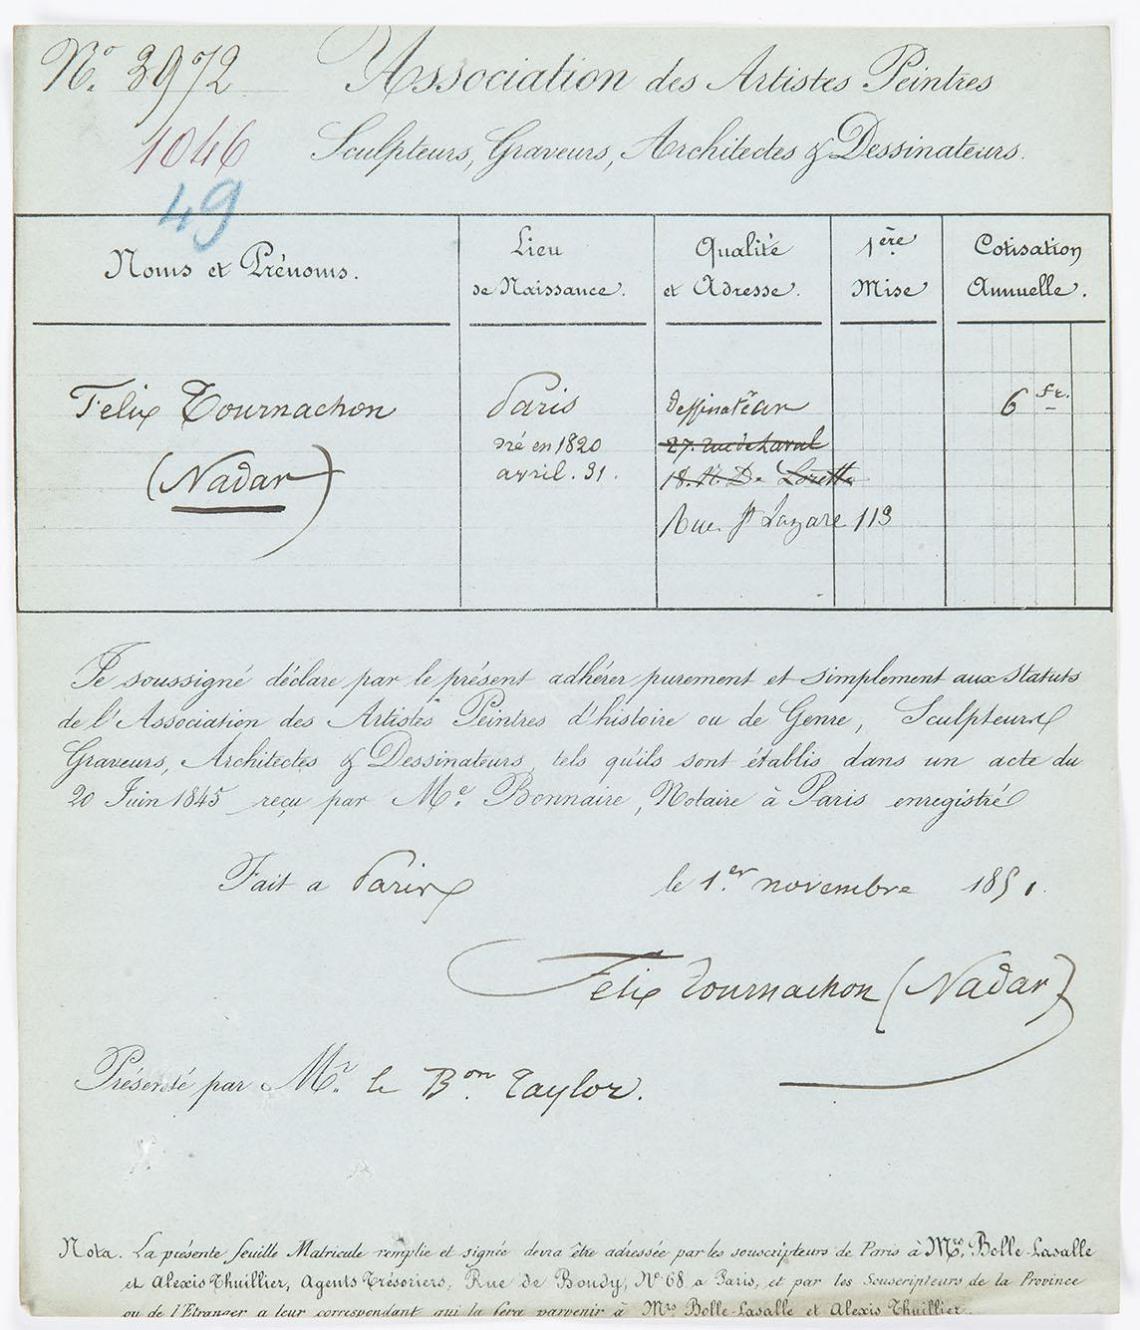 N.º 3972
Association des Artistes Peintres
1046
Sculpteurs, Graveurs, Architectes & Dessinateurs.
49
Noms et Prénoms.
Lieu
de Naissance.
Qualité
et Adresse.
1ère
Mise
Cotisation
Annuelle.
Felix Tournachon
(Nadar)
Paris
né en 1820
avril. 31.
dessinateur
27. rue de Laval
18. N. D. Lorette
Rue St Lazare 113
6 fr.
Je soussigné déclare par le présent adhérer purement et simplement aux Statuts
de l'Association des Artistes Peintres d'histoire ou de Genre, Sculpteurs
Graveurs, Architectes & Dessinateurs, tels qu'ils sont établis dans un acte du
20 Juin 1845 reçu par Me. Bonnaire, Notaire à Paris enregistré
Fait a Paris
le 1.er novembre 1851.
Felix Tournachon (Nadar)
Présenté par Mr. le Bon. Taylor.
Nota. La présente feuille Matricule remplie et signée devra être adressée par les souscripteurs de Paris à Mrs. Bolle-Lasalle
et Alexis Thuillier, Agents Trésoriers, Rue de Bondy, No 68 a Paris, et par les Souscripteurs de la Province
ou de l'Etranger a leur correspondant qui la fera parvenir à Mrs Bolle-Lasalle et Alexis Thuillier.